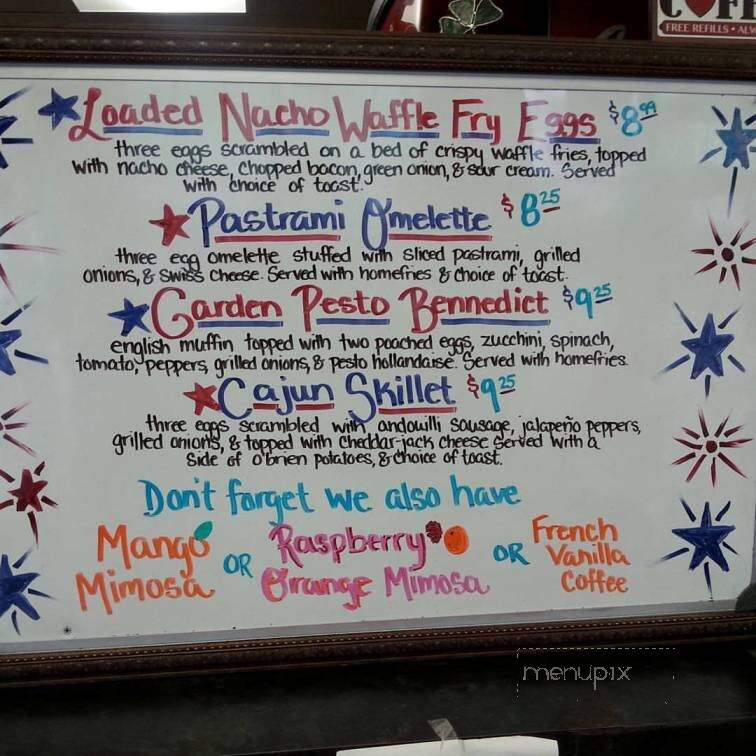 FREE REFILLS • ALW
Loaded Nacho Waffle Fry Eggs $8.99
three eggs scrambled on a bed of crispy waffle fries, topped
with nacho cheese, chopped bacon, green onion, & sour cream. Served
with choice of toast.
Pastrami O'melette $8.25
three egg omelette stuffed with sliced pastrami, grilled
onions, & swiss cheese. Served with homefries & choice of toast.
Garden Pesto Bennedict $9.25
english muffin topped with two poached eggs, zucchini, spinach,
tomato, peppers, grilled onions, & pesto hollandaise. Served with homefries.
Cajun Skillet $9.25
three eggs scrambled with andouilli sausage, jalapeño peppers,
grilled onions, & topped with cheddar-jack cheese served with a
side of o'brien potatoes, & choice of toast.
Don't forget we also have
Mango Mimosa OR Raspberry Orange Mimosa OR French Vanilla Coffee
menupix